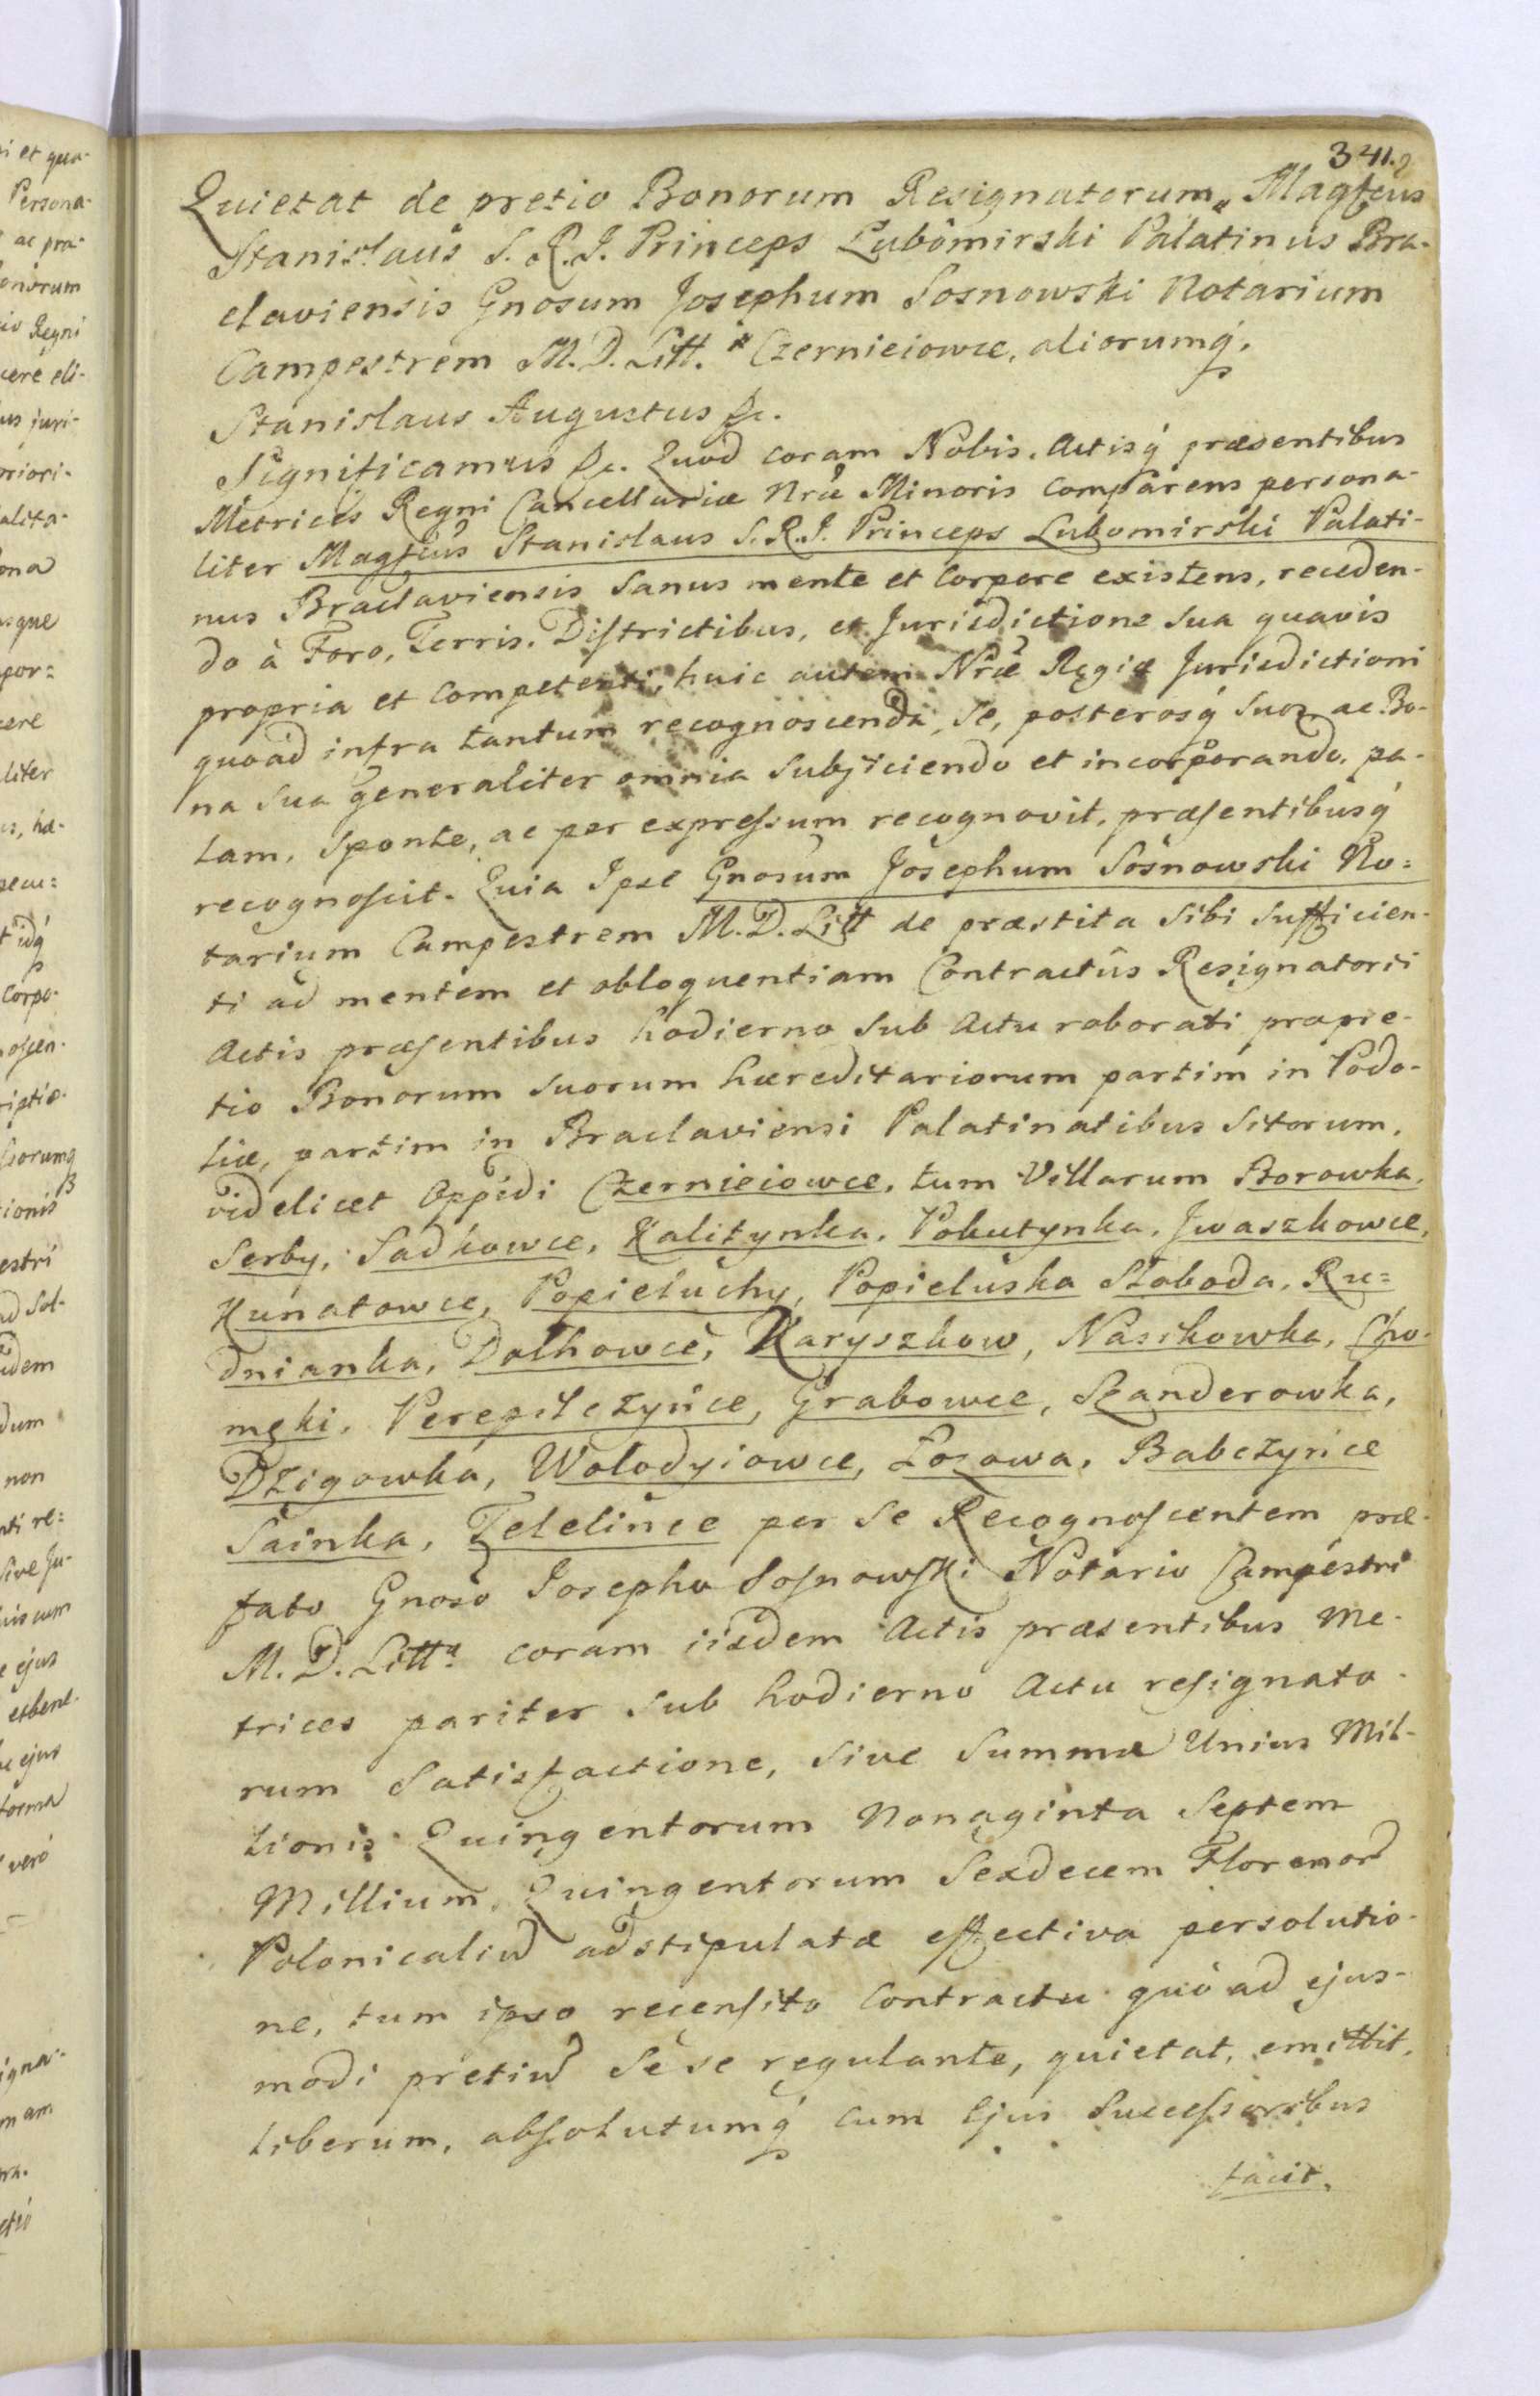 341.
Quietat de pretio Bonorum Resignatorum Magfcus
Stanislaus S. R. I. Princeps Lubomirski Palatinus Bra-
claviensis Gnosum Josephum Sosnowski Notarium
Campestrem M. D. Litt. Czernieiowce, aliorumq́.
Stanislaus Augustus &c.
Significamus &c. Quod coram Nobis, Actisq́ præsentibus
Metrices Regni Cancellariæ Nræ Minoris comparens persona-
liter Magfcus Stanislaus S. R. I. Princeps Lubomirski Palati-
nus Braclaviensis Sanus mente et Corpore existens, receden-
do à Foro, Terris, Districtibus, et Jurisdictione sua quavis
propria et competenti, huic autem Nræ Regiæ Jurisdictioni
quoad infra tantum recognoscenda, se, posterosq́ suos ac Bo-
na sua generaliter omnia subjiciendo et incorporando, pa-
lam, sponte, ac per expressum recognovit, præsentibusq́
recognoscit. Quia Ipse Gnosum Josephum Sosnowski No=
tarium Campestrem M. D. Litt de præstita sibi sufficien-
ti ad mentem et obloquentiam Contractûs Resignatorii
Actis præsentibus hodierno sub Actu roborati pro pre-
tio Bonorum suorum hæreditariorum partim in Podo-
liæ, partim in Braclaviensi Palatinatibus sitorum,
videlicet Oppidi Czernieiowce, tum Villarum Borowka,
Serby, Sadkowce, Kalitynka, Pokutynka, Iwaszkowce,
Kunatowce, Popieluchy, Popieluska Słoboda, Ru=
dnianka, Dołhowce, Karyszkow, Nasikowka, Cho-
męki, Perepilczyńce, Grabowce, Szanderowka,
Dzigowka, Wołodyiowce, Łozowa, Babczyńce
Sainka, Telelińce per se Recognoscentem præ-
fato Gnoso Josepho Sosnowski Notario Campestri
M. D. Litt. coram iisdem Actis præsentibus Me-
trices pariter sub hodierno Actu resignato-
rum satisfactione, sive summæ Unius Mil-
lionis Quingentorum Nonaginta Septem
Millium, Quingentorum Sexdecem Florenor
Polonicaliu adstipulatæ effectiva persolutio-
ne, tum ipso recensito Contractu quò ad ejus-
modi pretiu sese regulante, quietat, emittit,
liberum, absolutumq́ cum Ejus Successoribus
facit.